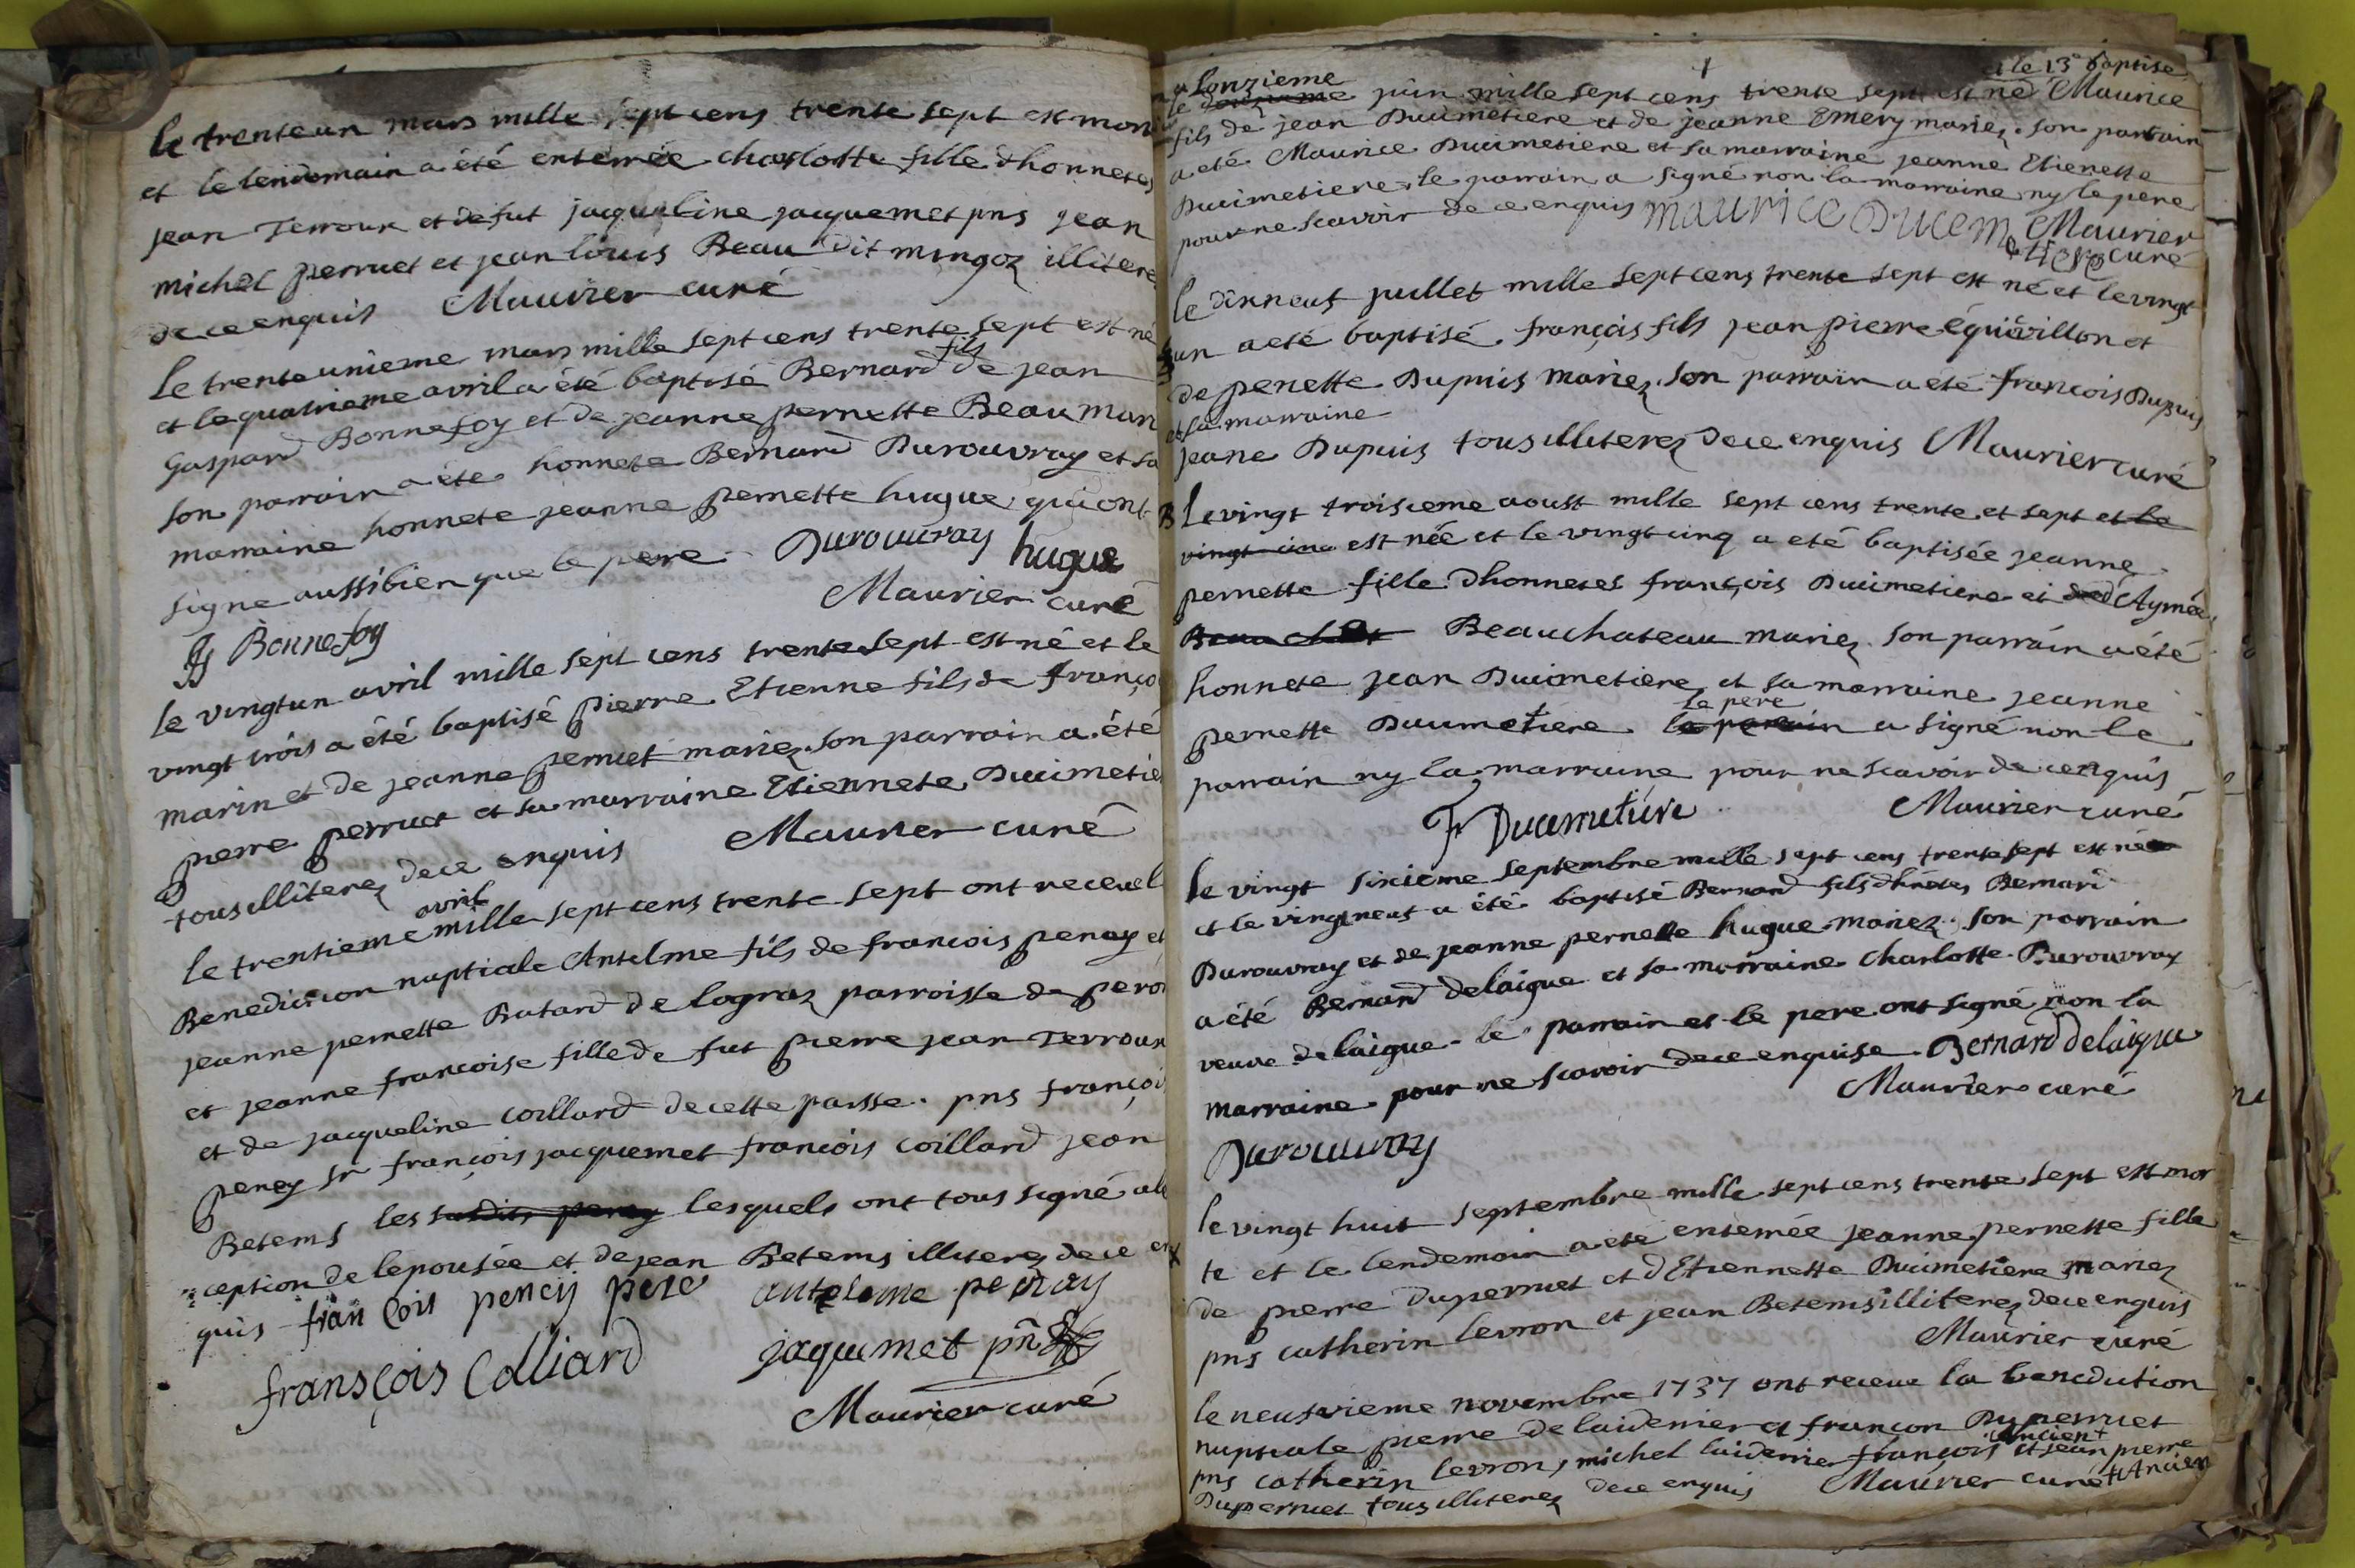 le trente un mars mille sept cens trente sept est mor
et le lendemain a été enterrée charlotte fille d'honnetes
jean Terroux et defut jacqueline jacquemet pns jean
michel perruet et jean louis Beau dit mingoz illitere
de ce enquis Maurier curé
Le trente unieme mars mille sept cens trente sept est né
et le quatrieme avril a été baptisé Bernard fils de jean
Gaspard Bonnefoy et de jeanne pernette Beau mar
son parrain a été honnete Bernard Durouvray et sa
marraine honnete jeanne pernette hugue qui ont
signe aussi bien que le pere Durouvray hugue
Maurier curé
Bonnefoy
le vingt un avril mille sept cens trente sept est né et le
vingt trois a été baptisé pierre Etienne fils de franço
marin et de jeanne perruet mariez son parrain a été
pierre perruet et sa marraine Etiennete Duimetie
tous illiterez de ce enquis Maurier curé
le trentieme avril mille sept cens trente sept ont receu l
Benediction nuptiale Antelme fils de francois peney et
jeanne pernette Butard de lagraz parroisse de pero
et jeanne francoise fille de fut pierre jean Terroux
et de jacqueline coillard de cette paisse. pns françois
peney sr françois jacquemet francois coillard jean
Betems les susdits peney lesquels ont tous signé al
ception de lepousée et de jean Betems illiterez de ce en
quis fran cois peney pere antelme peney
fransçois Colliard jaquemet pñt
Maurier curé
a le 13e baptisé
lonzieme
le douzieme juin mille sept cens trente sept est né Maurice
fils de jean Duimetiere et de jeanne Emery mariez. son parrain
a eté Maurice Duimetiere et sa marraine jeanne Etienette
Duimetiere. le parrain a signé non la marraine ny le pere
pour ne scavoir de ce enquis Maurice Ducem etiere Maurier
curé
le dixneuf juillet mille sept cens trente sept est né et le vingt
un a eté baptisé françois fils jean pierre équivillon et
de penette Dupuis mariez son parrain a été francois Dupuis
et sa marraine
jeane Dupuis tous illiterez de ce enquis Maurier curé
B Le vingt troisieme aoust mille sept cens trente et sept et le
vingt cinq est née et le vingt cinq a eté baptisée jeanne
pernette fille d'honnetes françois Duimetiere et ded Aymée
Beauchat Beauchateau mariez son parrain a été
honnete jean Duimetiere et sa marraine jeanne
pernette Duimetiere. le parain le pere a signé non le
parrain ny la marraine pour ne scavoir de ce enquis
Fr Ducemetiere Maurier curé
le vingt sixieme septembre mille sept cens trente sept est né
et le vingt neuf a été baptisé Bernard fils d'hnetes Bernard
Durouvray et de jeanne pernette hugue mariez son parrain
a été Bernard delaigue et sa marraine Charlotte Durouvray
veuve delaigue. le parrain et le pere ont signé non la
marraine pour ne scavoir de ce enquise. Bernard delaigue
Maurier curé
Durouvray
le vingt huit septembre mille sept cens trente sept est mor
te et le lendemain a été enterrée jeanne pernette fille
de pierre Duperruet et d'Etiennette Duimetiere mariez
pns catherin levron et jean Betems illiterez de ce enquis
Maurier curé
le neufvieme novembre 1737 ont receue la benediction
nuptiale pierre de laidernier et françon Duperruet
pns catherin levron, michel laidernier françois ancien + et jean pierre
Duperruet tous illiterez de ce enquis Maurier curé + Ancien